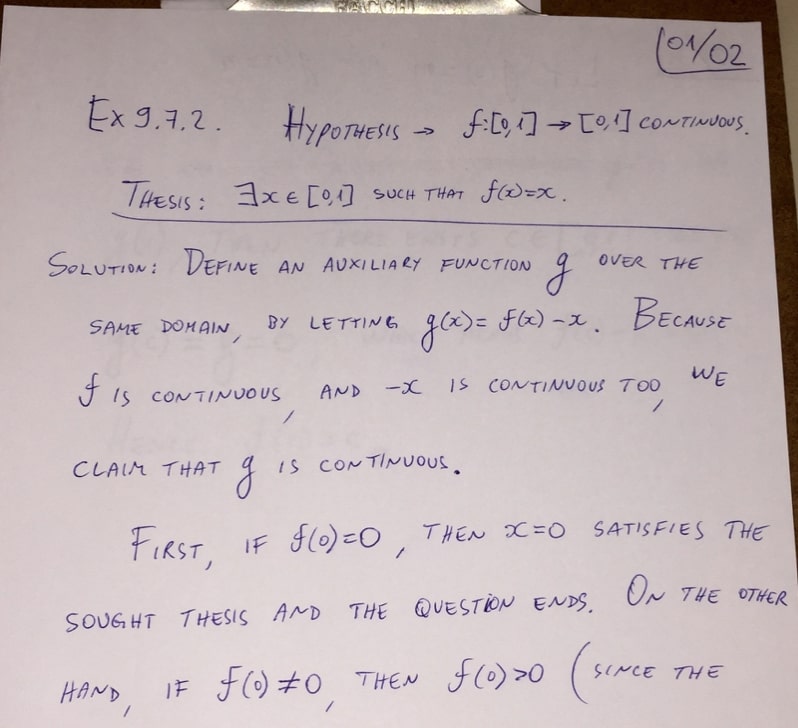 01/02
Ex 9.7.2. HYPOTHESIS → f:[0,1] → [0,1] CONTINUOUS.
THESIS: ∃x ∈ [0,1] SUCH THAT f(x)=x.
SOLUTION: DEFINE AN AUXILIARY FUNCTION g OVER THE
SAME DOMAIN, BY LETTING g(x)= f(x)-x. BECAUSE
f IS CONTINUOUS, AND -x IS CONTINUOUS TOO, WE
CLAIM THAT g IS CONTINUOUS.
FIRST, IF f(0)=0, THEN x=0 SATISFIES THE
SOUGHT THESIS AND THE QUESTION ENDS. ON THE OTHER
HAND, IF f(0)≠0, THEN f(0)>0 (SINCE THE